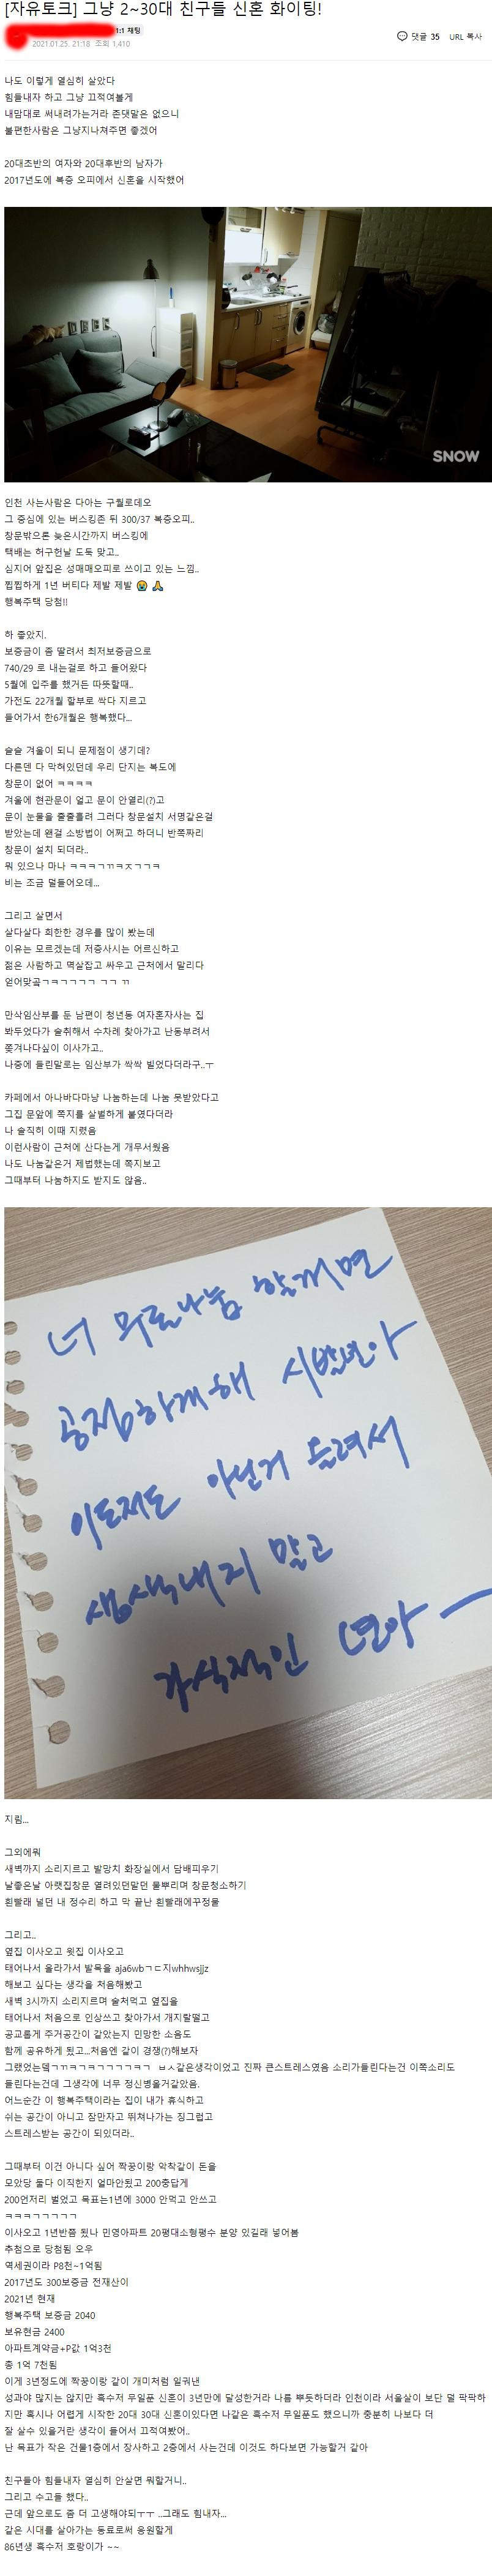 [자유토크] 그냥 2~30대 친구들 신혼 화이팅!
1:1 채팅
2021.01.25. 21:18 조회 1,410
댓글 35 URL 복사
나도 이렇게 열심히 살았다
힘들내자 하고 그냥 끄적여볼게
내맘대로 써내려가는거라 존댓말은 없으니
불편한사람은 그냥지나쳐주면 좋겠어
20대초반의 여자와 20대후반의 남자가
2017년도에 복층 오피에서 신혼을 시작했어
SNOW
인천 사는사람은 다아는 구월로데오
그 중심에 있는 버스킹존 뒤 300/37 복층오피..
창문밖으론 늦은시간까지 버스킹에
택배는 허구헌날 도둑 맞고..
심지어 앞집은 성매매오피로 쓰이고 있는 느낌..
찝찝하게 1년 버티다 제발 제발 😭 🙏
행복주택 당첨!!
하 좋았지.
보증금이 좀 딸려서 최저보증금으로
740/29 로 내는걸로 하고 들어왔다
5월에 입주를 했거든 따뜻할때..
가전도 22개월 할부로 싹다 지르고
들어가서 한6개월은 행복했다...
슬슬 겨울이 되니 문제점이 생기데?
다른덴 다 막혀있던데 우리 단지는 복도에
창문이 없어 ㅋㅋㅋㅋ
겨울에 현관문이 얼고 문이 안열리(?)고
문이 눈물을 줄줄흘려 그러다 창문설치 서명같은걸
받았는데 왠걸 소방법이 어쩌고 하더니 반쪽짜리
창문이 설치 되더라..
뭐 있으나 마나 ㅋㅋㅋㄱㄲㅋㅈㄱㄱㅋ
비는 조금 덜들어오데...
그리고 살면서
살다살다 희한한 경우를 많이 봤는데
이유는 모르겠는데 저층사시는 어르신하고
젊은 사람하고 멱살잡고 싸우고 근처에서 말리다
얻어맞곸ㄱㅋㄱㄱㄱㄱ ㄱㄱ ㄲ
만삭임산부를 둔 남편이 청년동 여자혼자사는 집
봐두었다가 술취해서 수차례 찾아가고 난동부려서
쫒겨나다싶이 이사가고..
나중에 들린말로는 임산부가 싹싹 빌었다더라구..ㅜ
카페에서 아나바다마냥 나눔하는데 나눔 못받았다고
그집 문앞에 쪽지를 살벌하게 붙였다더라
나 솔직히 이때 지렸음
이런사람이 근처에 산다는게 개무서웠음
나도 나눔같은거 제법했는데 쪽지보고
그때부터 나눔하지도 받지도 않음..
너 무료나눔 할꺼면
공정하게해 시발년아
이도저도 아닌거 들려서
생색내지 말고
가식적인 년아ㅡ
지림...
그외에뭐
새벽까지 소리지르고 발망치 화장실에서 담배피우기
날좋은날 아랫집창문 열려있던말던 물뿌리며 창문청소하기
흰빨래 널던 내 정수리 하고 막 끝난 흰빨래에꾸정물
그리고..
옆집 이사오고 윗집 이사오고
태어나서 올라가서 발목을 aja6wbㄱㄷ지whhwsjjz
해보고 싶다는 생각을 처음해봤고
새벽 3시까지 소리지르며 술처먹고 옆집을
태어나서 처음으로 인상쓰고 찾아가서 개지랄떨고
공교롭게 주거공간이 같았는지 민망한 소음도
함께 공유하게 됬고...처음엔 같이 경쟁(?)해보자
그랬었는뎈ㄱㄲㅋㄱㅋㄱㄱㄱㄱㅋㄱ ㅂㅅ같은생각이었고 진짜 큰스트레스였음 소리가들린다는건 이쪽소리도
들린다는건데 그생각에 너무 정신병올거같았음.
어느순간 이 행복주택이라는 집이 내가 휴식하고
쉬는 공간이 아니고 잠만자고 뛰쳐나가는 징그럽고
스트레스받는 공간이 되있더라..
그때부터 이건 아니다 싶어 짝꿍이랑 악착같이 돈을
모았당 둘다 이직한지 얼마안됬고 200충답게
200언저리 벌었고 목표는1년에 3000 안먹고 안쓰고
ㅋㅋㅋㄱㄱㄱㄱㄱ
이사오고 1년반쯤 됬나 민영아파트 20평대소형평수 분양 있길래 넣어봄
추첨으로 당첨됨 오우
역세권이라 P8천~1억됨
2017년도 300보증금 전재산이
2021년 현재
행복주택 보증금 2040
보유현금 2400
아파트계약금+P값 1억3천
총 1억 7천됨
이게 3년정도에 짝꿍이랑 같이 개미처럼 일궈낸
성과야 많지는 않지만 흑수저 무일푼 신혼이 3년만에 달성한거라 나름 뿌듯하더라 인천이라 서울살이 보단 덜 팍팍하
지만 혹시나 어렵게 시작한 20대 30대 신혼이있다면 나같은 흑수저 무일푼도 했으니까 충분히 나보다 더
잘 살수 있을거란 생각이 들어서 끄적여봤어..
난 목표가 작은 건물1층에서 장사하고 2층에서 사는건데 이것도 하다보면 가능할거 같아
친구들아 힘들내자 열심히 안살면 뭐할거니..
그리고 수고들 했다..
근데 앞으로도 좀 더 고생해야되ㅜㅜ ..그래도 힘내자...
같은 시대를 살아가는 동료로써 응원할게
86년생 흑수저 호랑이가 ~~